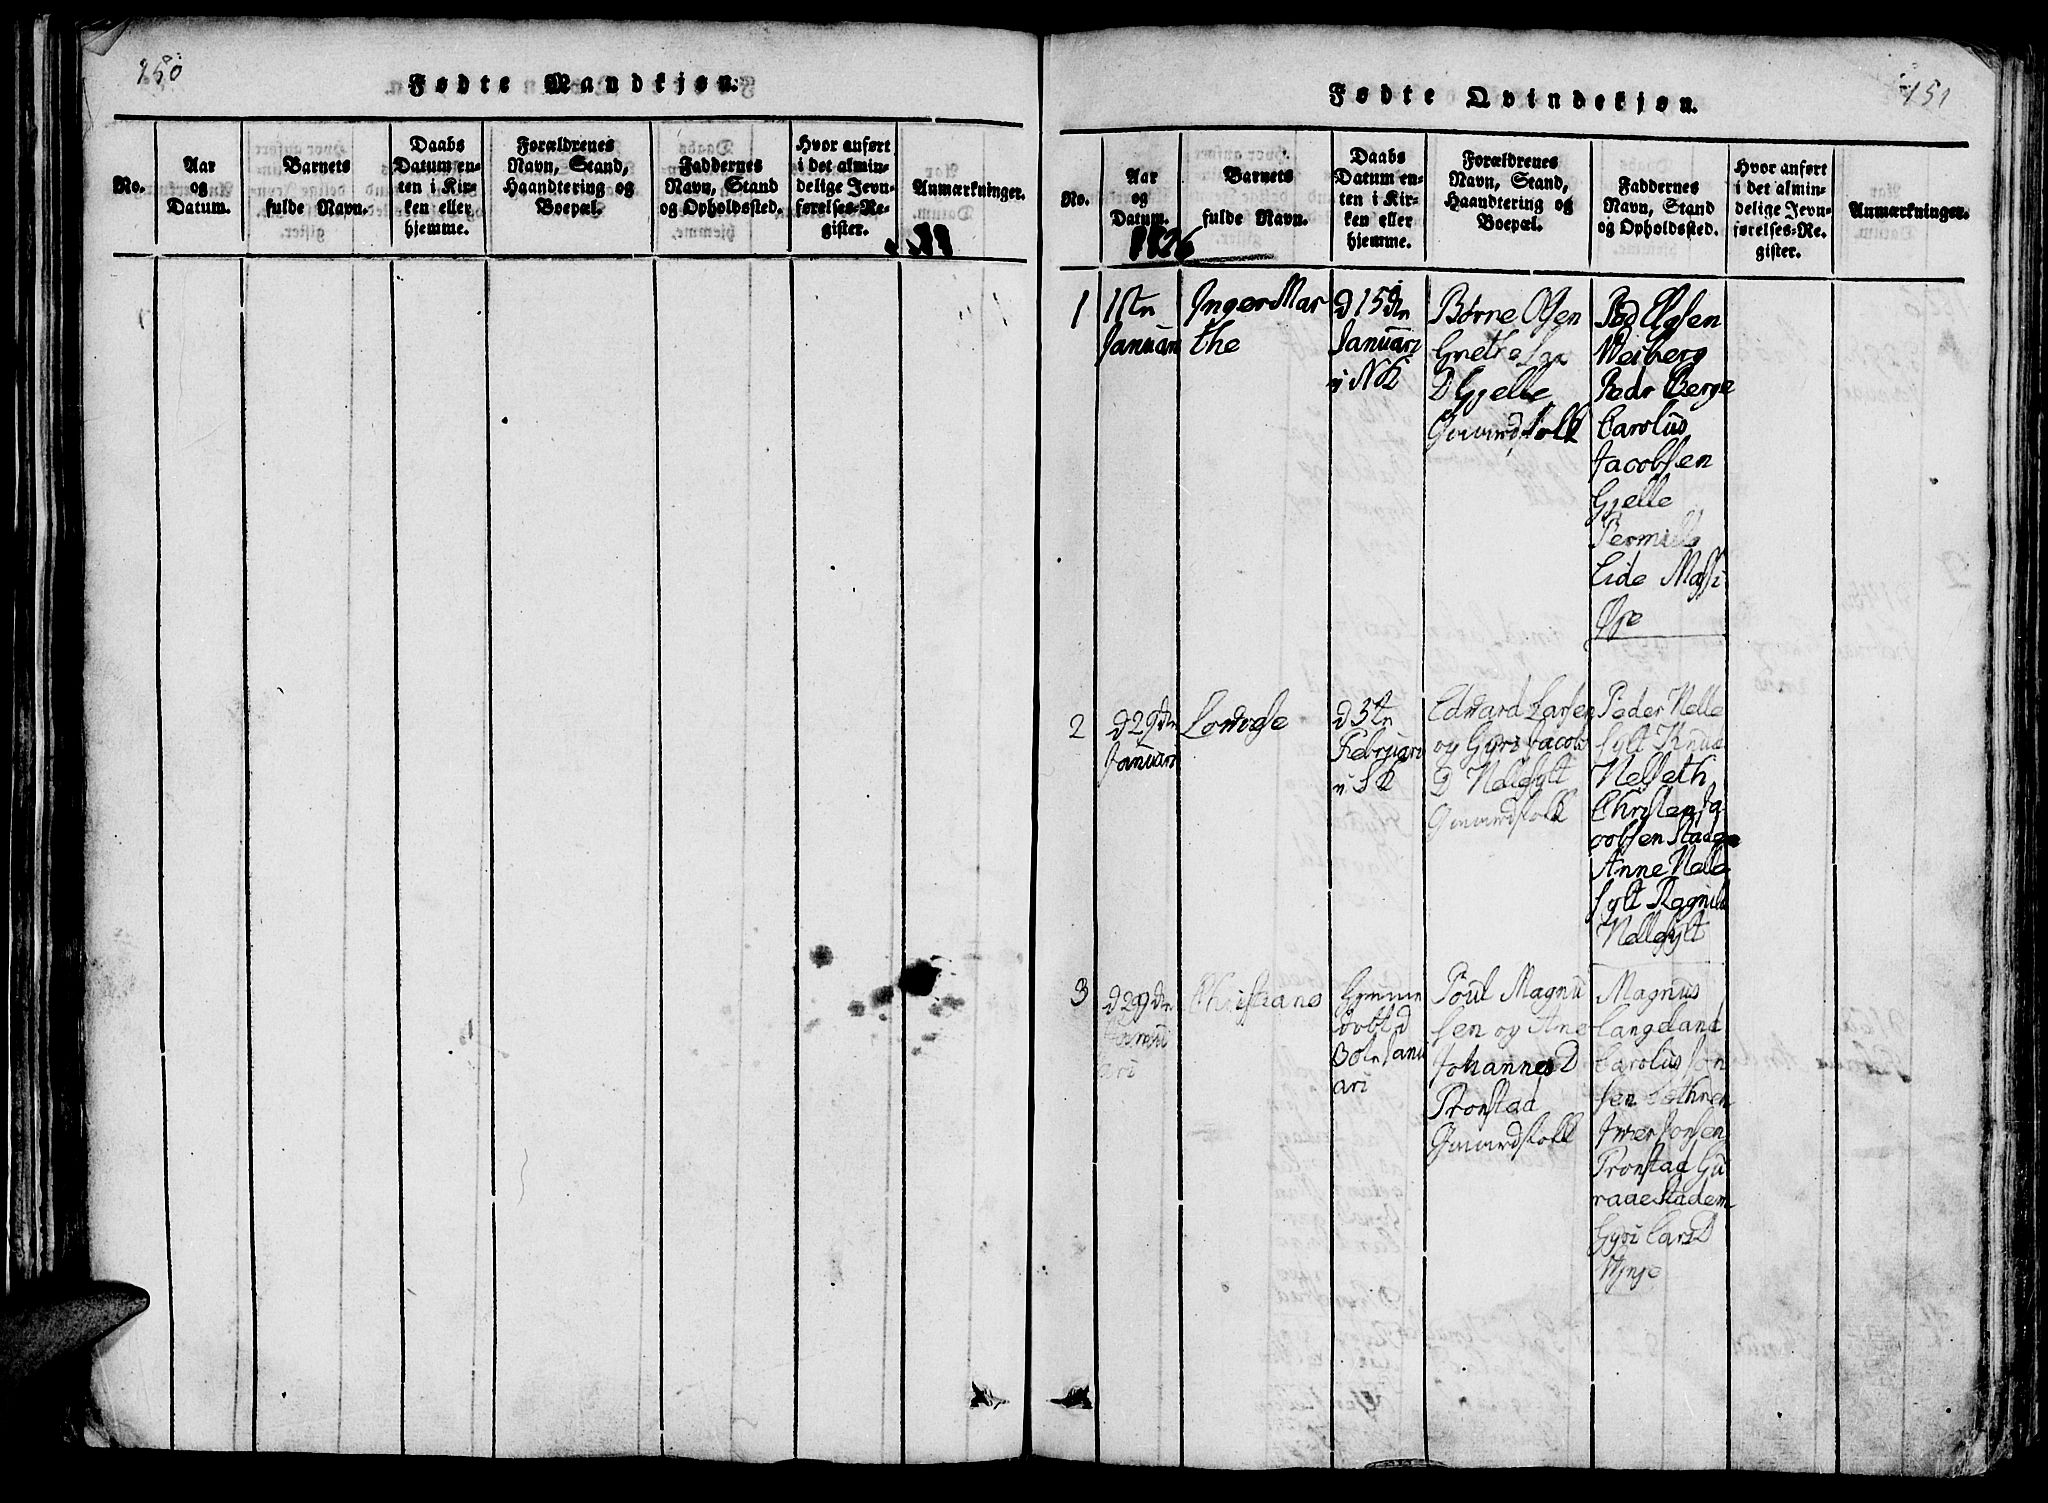 150
Fødte Mandkjøn.
No.
Aar
og
Datum.
Barnets
fulde Navn.
Daabs
Datum en-
ten i Kir-
ken eller
hjemme.
Forældrenes
Navn, Stand,
Haandtering og
Boepæl.
Faddernes
Navn, Stand
og Opholdssted.
Hvor anført
i det almin-
delige Jevn-
førelses-Re-
gister.
Anmærkninger.
151
Fødte Qvindekjøn.
No.
Aar
og
Datum.
Barnets
fulde Navn.
Daabs
Datum en-
ten i Kir-
ken eller
hjemme.
Forældrenes
Navn, Stand,
Haandtering og
Boepæl.
Faddernes
Navn, Stand
og Opholdssted.
Hvor anført
i det almin-
delige Jevn-
førelses-Re-
gister.
Anmærkninger.
1826
1
1ste
Januari
Inger Mar
the
d 15de
Januari
i NK
Børne Olsen
Grethe
D Gjelle
Gaardfolk
Elgsen
Weiberg
Pedr Berge
Carolus
Jacobsen
Gjelle
Permille
Eide
Øje
2
d 29de
Januari
Lovise
d 3te
Februari
i SK
Edvard Larsen
og Gyri Jacobs
D Hellesylt
Gaardfolk
Peder Helle
sylt Knud
Helseth
Christen Ja
cobsen Stadem
Anne Helle
sylt Ragnild
Hellesylt
3
d 29de
Januari
Christiane
Hjemme
døbt d
30te Janu
ari
Poul Magnu
sen og Ane
Johannes D
Tronstad
Gaardfolk
Magnus
Langeland
Carolus Jon
sen
Iver Jonsen
Tronstad Gu
Stadem
Gyri Lars D